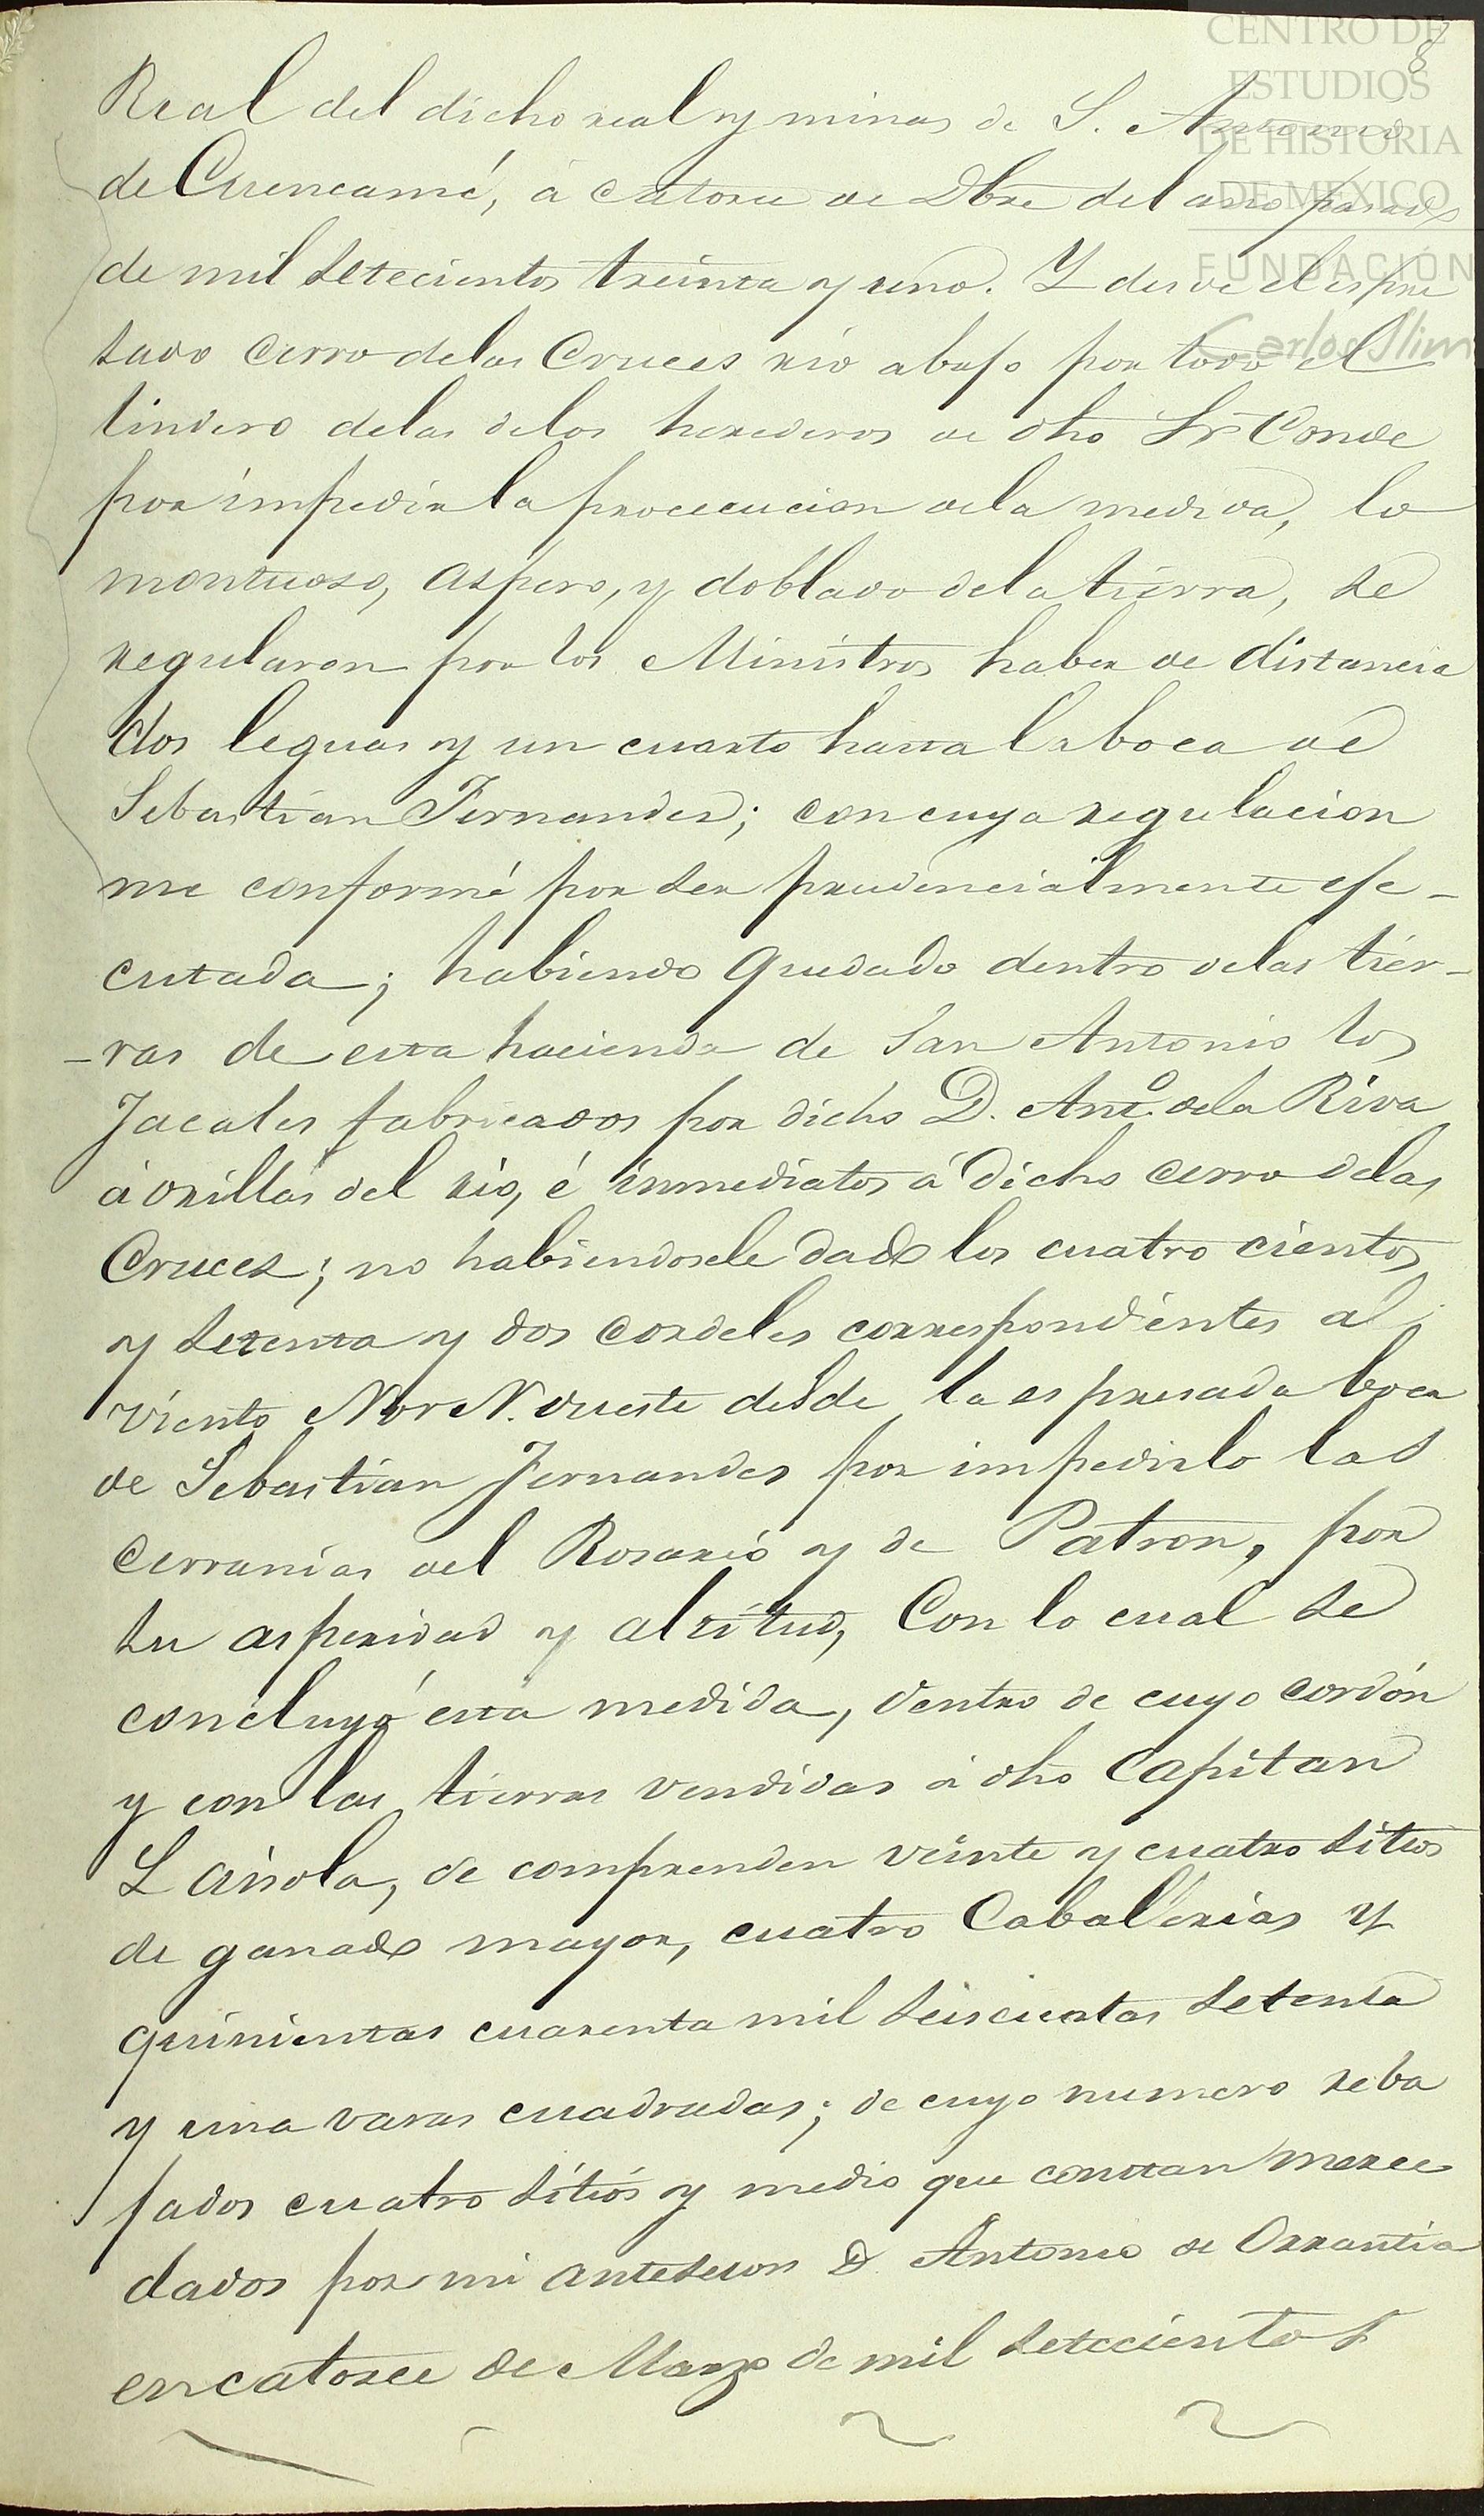 8
CENTRO DE
ESTUDIOS
DE HISTORIA
DE MEXICO
FUNDACIÓN
Carlos Slim
Real del dicho real y minas de S. Antonio
de Cuencamé, á catorce de Dbre del año pasado
de mil setecientos treinta y uno. Y desde el espre
sado cerro delas Cruces rio abajo por todo el
lindero delas delos herederos de dho Sr Conde
por impedir la procecucion dela medida, lo
montuoso, aspero, y doblado dela tierra, se
regularon por los Ministros haber de distancia
dos leguas y un cuarto hasta la boca de
Sebastian Fernandes; con cuya regulacion
me conformé por ser prudencialmente eje-
cutada; habiendo quedado dentro delas tier-
-ras de esta hacienda de San Antonio los
Jacales fabricados por dicho D. Anto. dela Riva
á orillas del rio, é inmediatos á dicho cerro delas
Cruces; no habiendosele dado los cuatro cientos
y setenta y dos cordeles correspondientes al
viento Nor N. oueste desde la espresada boca
de Sebastian Fernandes por impedirlo las
cerranias del Rosario y de Patron, por
su asperidad y altitud, Con lo cual se
concluyó esta medida, dentro de cuyo cordón
y con las tierras vendidas á dho Capitan
Laisola, se comprenden veinte y cuatro sitios
de ganado mayor, cuatro Caballerias y
quinientas cuarenta mil seiscientas setenta
y una varas cuadradas; de cuyo numero reba
jados cuatro sitios y medio que constan merce
dados por mi antesesor D. Antonio de Orrantia
en catorce de Marzo de mil setecientos